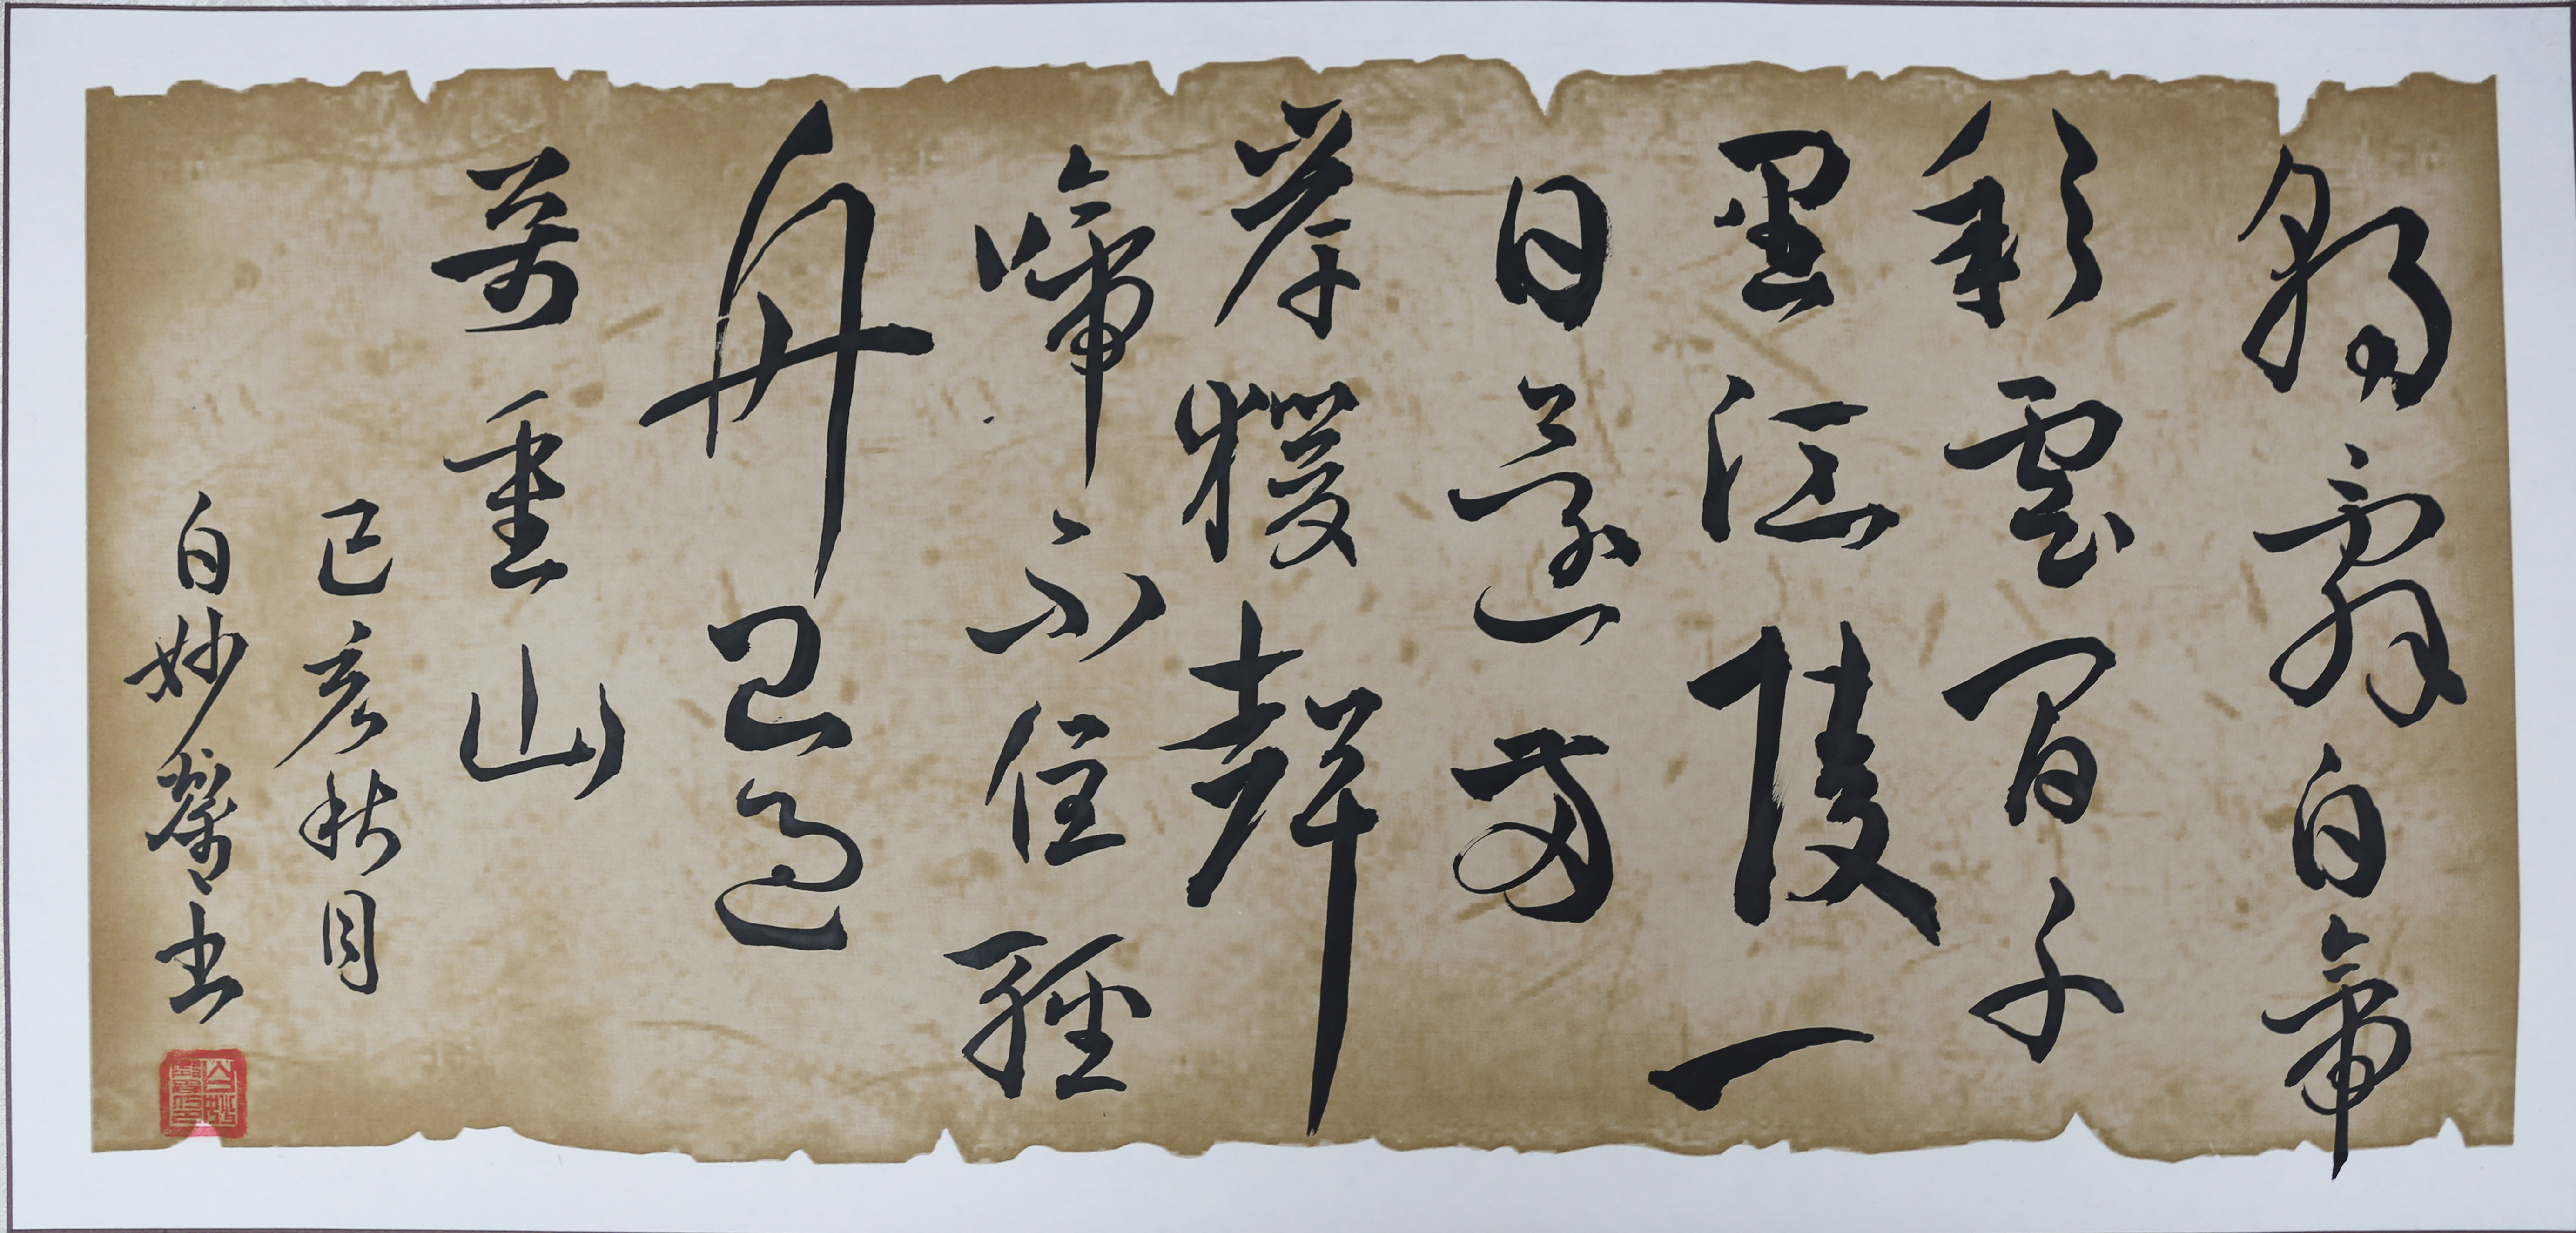 朝辭白帝
彩雲間千
里江陵一
日還兩
岸猨聲
啼不住輕
舟已過
萬重山
己亥秋月
白妙 书